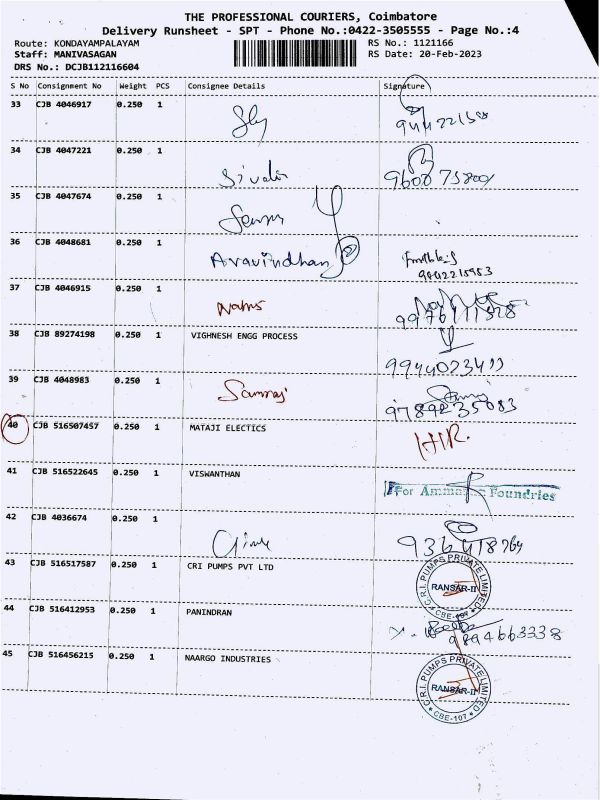 THE PROFESSIONAL COURIERS, Coimbatore
Delivery Runsheet - SPT - Phone No.:0422-3505555 - Page No.:4
Route: KONDAYAMPALAYAM RS No.: 1121166
Staff: MANIVASAGAN RS Date: 20-Feb-2023
DRS No.: DCJB112116604
S No Consignment No Weight PCS Consignee Details Signature
33 CJB 4046917 0.250 1
34 CJB 4047221 0.250 1
35 CJB 4047674 0.250 1
36 CJB 4048681 0.250 1 Aravindhan
9842215953
37 CJB 4046915 0.250 1
38 CJB 89274198 0.250 1 VIGHNESH ENGG PROCESS
39 CJB 4048983 0.250 1
9789235083
40 CJB 516507457 0.250 1 MATAJI ELECTICS
41 CJB 516522645 0.250 1 VISWANTHAN
For Foundries
42 CJB 4036674 0.250 1
43 CJB 516517587 0.250 1 CRI PUMPS PVT LTD
C.R.I. PUMPS PRIVATE LIMITED
RANSAR-II
CBE-107
44 CJB 516412953 0.250 1 PANINDRAN
9894663338
45 CJB 516456215 0.250 1 NAARGO INDUSTRIES
C.R.I. PUMPS PRIVATE LIMITED
RANSAR-II
CBE-107